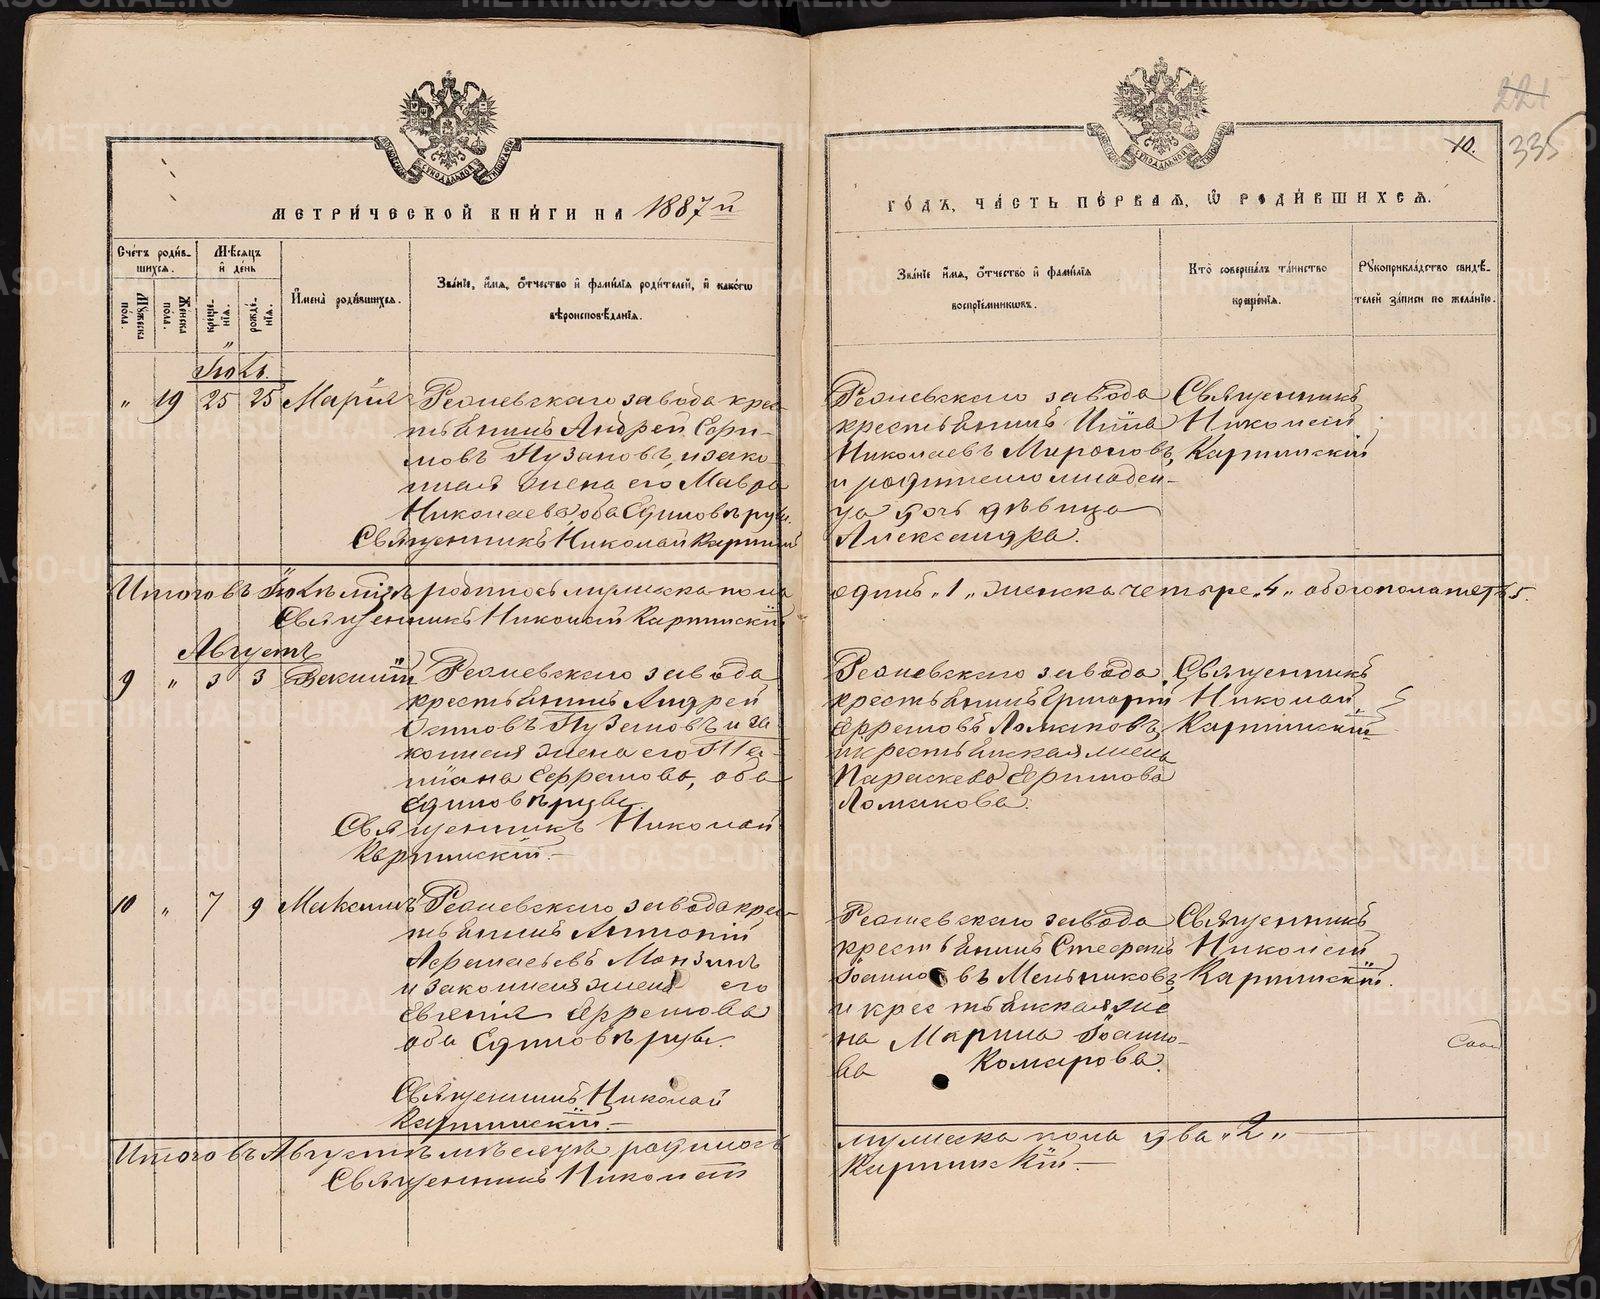 221
10.
335
МЕТРИЧЕСКОЙ КНИГИ НА 1887й
ГОДЪ, ЧАСТЬ ПЕРВАЯ, Ѿ РОДИВШИХСЯ.
Счетъ родившихся.
Мѣсяцъ и день
Имена родившихся.
Званіе, имя, отчество и фамилія родителей, и какого вѣроисповѣданія.
Мужеска пола.
Женска пола.
крещенія.
рожденія.
Званіе имя, отчество и фамилія воспріемниковъ.
Кто совершалъ таинство крещенія.
Рукоприкладство свидѣтелей записи по желанію.
Іюль.
" 19 25 25 Марія
Режевскаго завода крес-
тьянинъ Андрей
Пузановъ, и зако-
нная жена его Мавра
Николаева, оба Единовѣрцы.
Священникъ Николай Карпинскій
Режевскаго завода
крестьянинъ
Николаевъ Мироновъ,
и родителю младен-
ца дочь дѣвица
Александра.
Священникъ
Николай
Карпинскій
Итого въ Іюлѣ мцѣ родилось мужеска пола
единъ "1" женска четыре "4" обоего пола пять 5.
Священникъ Николай Карпинскій
Августъ
9 " 3 3
Режевскаго завода
крестьянинъ Андрей
Пузановъ и за-
конная жена его Та-
тіана Ефремова, оба
единовѣрцы.
Священникъ Николай
Карпинскій.
Режевскаго завода
крестьянинъ
Ефремовъ Ломаковъ,
и крестьянская жена
Параскева
Ломакова.
Священникъ
Николай
Карпинскій
10 " 7 9 Максимъ
Режевскаго завода крес-
тьянинъ Антоній
и законная жена его
Евгенія Ефремова
оба Единовѣрцы.
Священникъ Николай
Карпинскій.
Режевскаго завода
крестьянинъ Стефанъ
Іоанновъ Мельниковъ,
и крестьянская же-
на Марина Іоанно-
ва Комарова.
Священникъ
Николай
Карпинскій.
Итого въ Августѣ мѣсяцѣ родилось
мужеска пола два "2"
Священникъ Николай
Карпинскій.
METRIKI.GASO-URAL.RU